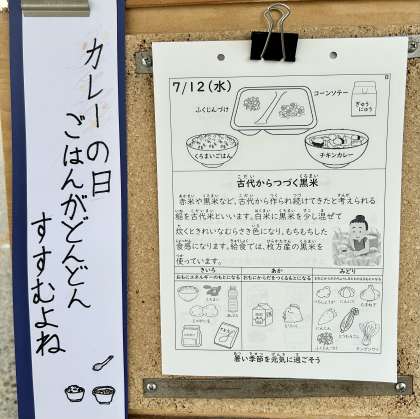 カレーの日
ごはんがどんどん
すすむよね
7/12(水)
コーンソテー
ふくじんづけ
ぎゅうにゅう
くろまいごはん
チキンカレー
古代からつづく黒米
赤米や黒米など、古代から作られ続けてきたと考えられる
稲を古代米といいます。白米に黒米を少し混ぜて
炊くときれいなむらさき色になり、もちもちした
食感になります。給食では、枚方産の黒米を
使っています。
きいろ
おもにエネルギーのもとになる
あか
おもにからだをつくるもとになる
みどり
暑い季節を元気に過ごそう